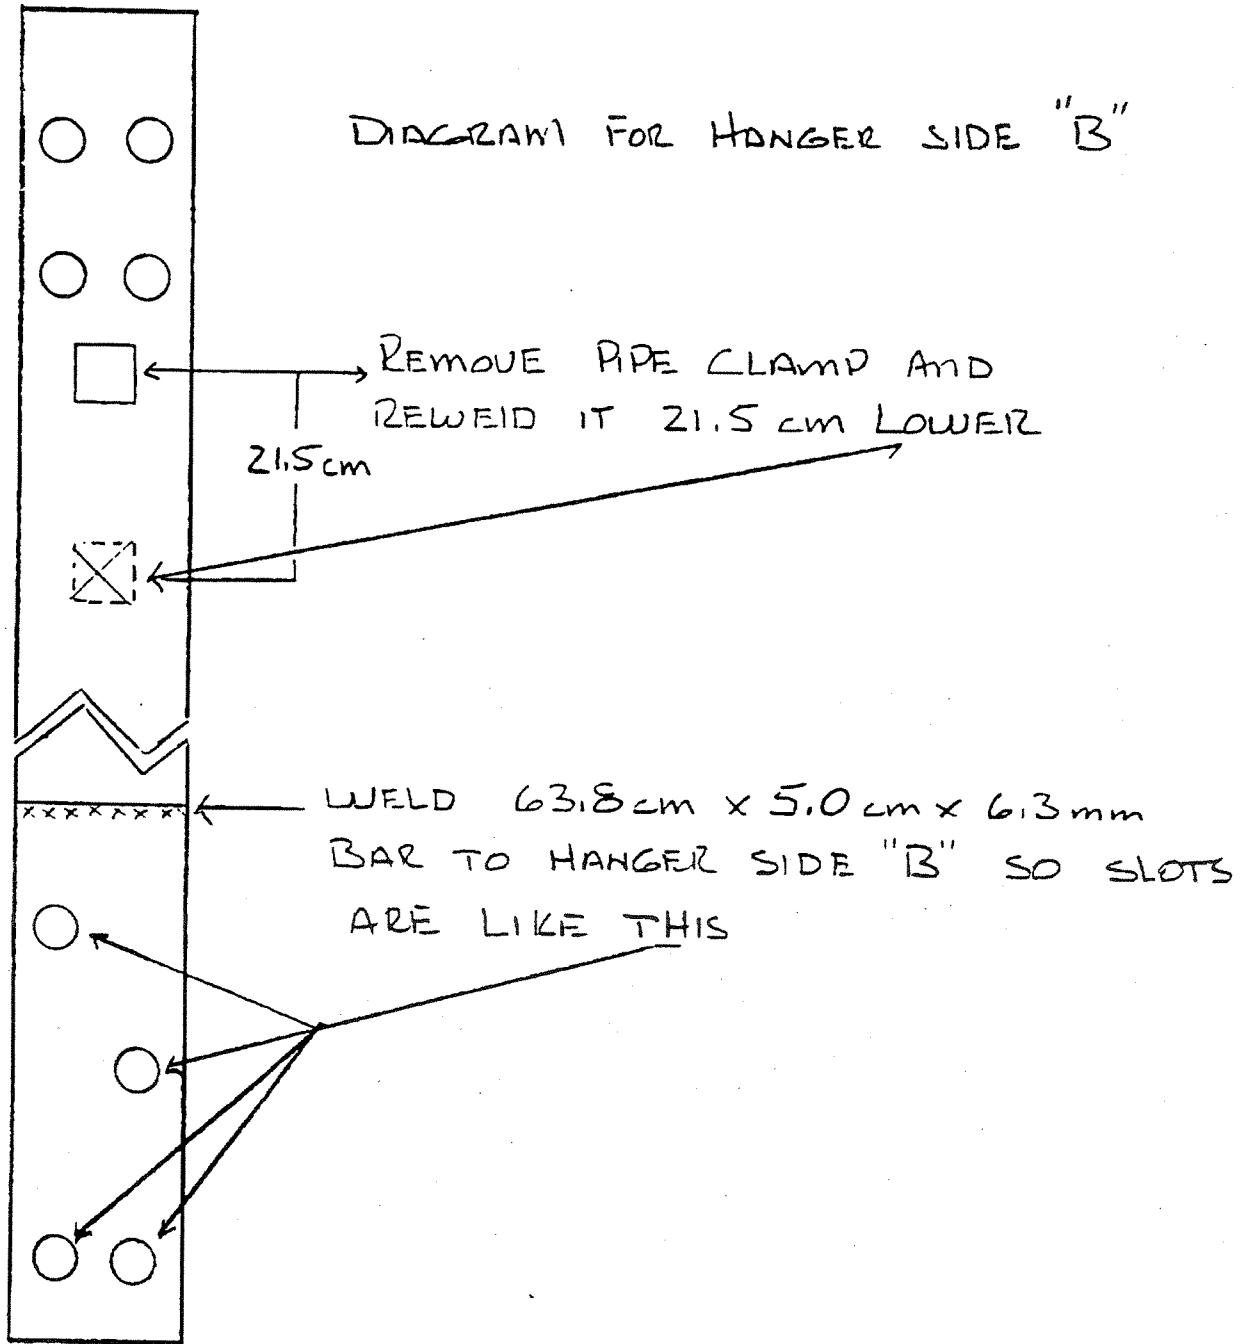 DIAGRAM FOR HANGER SIDE "B"
REMOVE PIPE CLAMP AND
REWELD IT 21.5 cm LOWER
21.5 cm
WELD 63.8 cm x 5.0 cm x 6.3 mm
BAR TO HANGER SIDE "B" SO SLOTS
ARE LIKE THIS